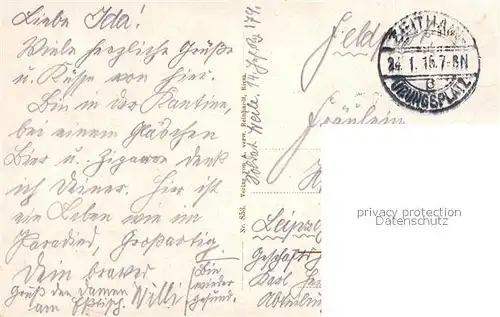 Liebe Ida!
Viele herzliche Grüße
u. Küsse von hier.
Bin in der Kantine,
bei einem Gläschen
Bier u. Zigarre denk
ich Deiner. Hier ist
ein Leben wie im
Paradies, Großartig.
Dein braver
Willi
Gruß den Damen
am
Bin
wieder
gesund.
Nr. 853. Verlag von A. verw. Reinhardt, Riesa.
Feldp
ZEITHAIN
24.1.16.7-8N
c
ÜBUNGSPLATZ
Fräulein
Leipzig
privacy protection
Datenschutz